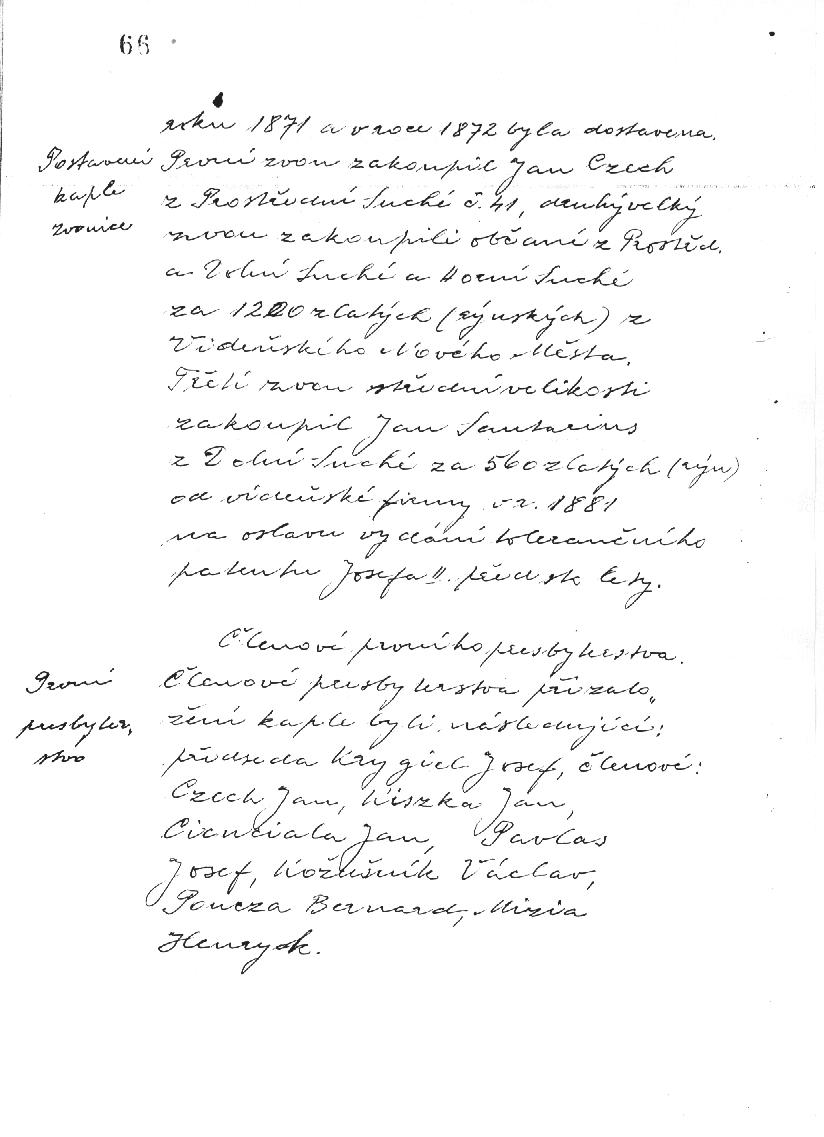 66
roku 1871 a v roce 1872 byla dostavena.
Postavení
kaple
zvonice
První zvon zakoupil Jan Czech
z Prostřední Suché č. 41, druhý velký
zvon zakoupili občané z Prostřed.
a Dolní Suché a Horní Suché
za 1200 zlatých (rýnských) z
Vídeňského Nového Města.
Třetí zvon střední velikosti
zakoupil Jan Santarius
z Dolní Suché za 560 zlatých (rýn)
od vídeňské firmy v r. 1881
na oslavu vydání tolerančního
patentu Josefa II. před sto lety.
Členové prvního presbyterstva.
První
presbyter,
stvo
Členové presbyterstva při zalo„
žení kaple byli následující:
předseda Krygiel Josef, členové:
Czech Jan, Kiszka Jan,
Cienciala Jan, Pavlas
Josef, Kožušník Václav,
Poncza Bernard, Mizia
Henryk.